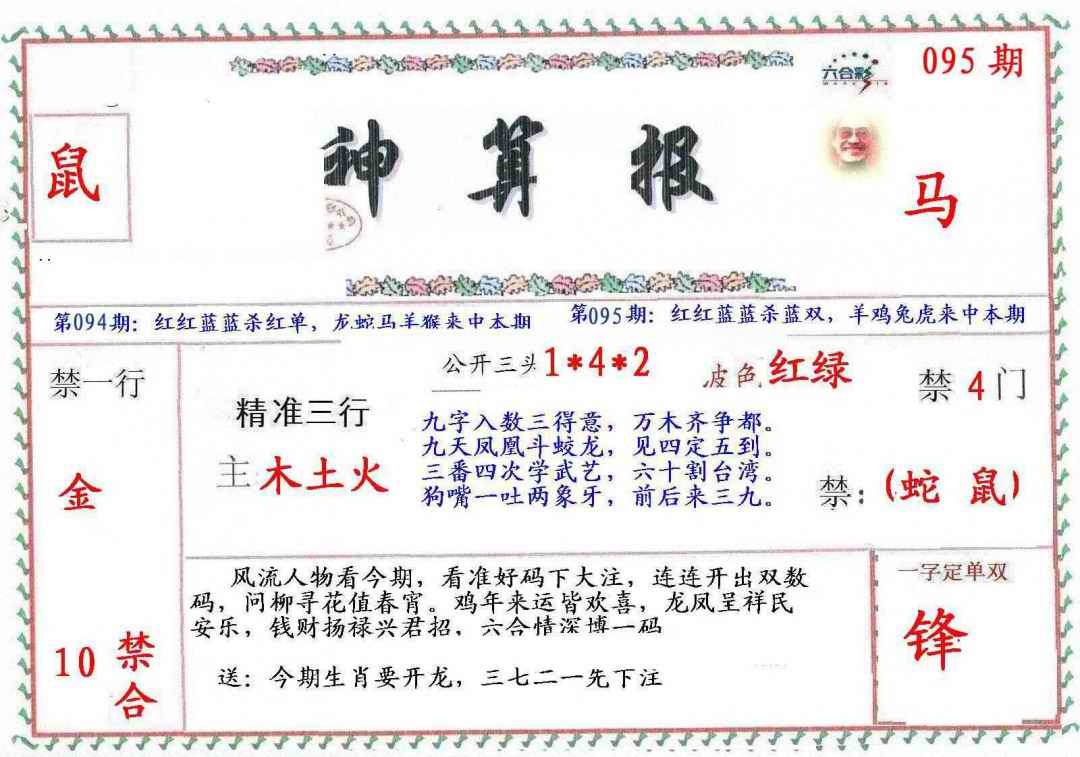 095 期
六合彩
鼠
神算报
马
第094期：红红蓝蓝杀红单，龙蛇马羊猴来中本期
第095期：红红蓝蓝杀蓝双，羊鸡兔虎来中本期
禁一行
金
10 禁合
公开三头1*4*2
波色 红绿
禁 4 门
精准三行
主 木土火
九字入数三得意，万木齐争都。
九天凤凰斗蛟龙，见四定五到。
三番四次学武艺，六十割台湾。
狗嘴一吐两象牙，前后来三九。
禁：(蛇 鼠)
风流人物看今期，看准好码下大注，连连开出双数
码，问柳寻花值春宵。鸡年来运皆欢喜，龙凤呈祥民
安乐，钱财扬禄兴君招，六合情深博一码
送：今期生肖要开龙，三七二一先下注
一字定单双
锋